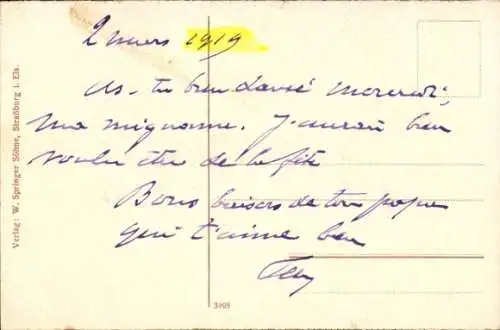 2 mars 1919
As-tu bien dansé mercredi,
ma mignonne. J'aurais bien
voulu être de la fête
Bons baisers de ton papa
qui t'aime bien
Verlag: W. Springer Söhne, Straßburg i. Els.
3495